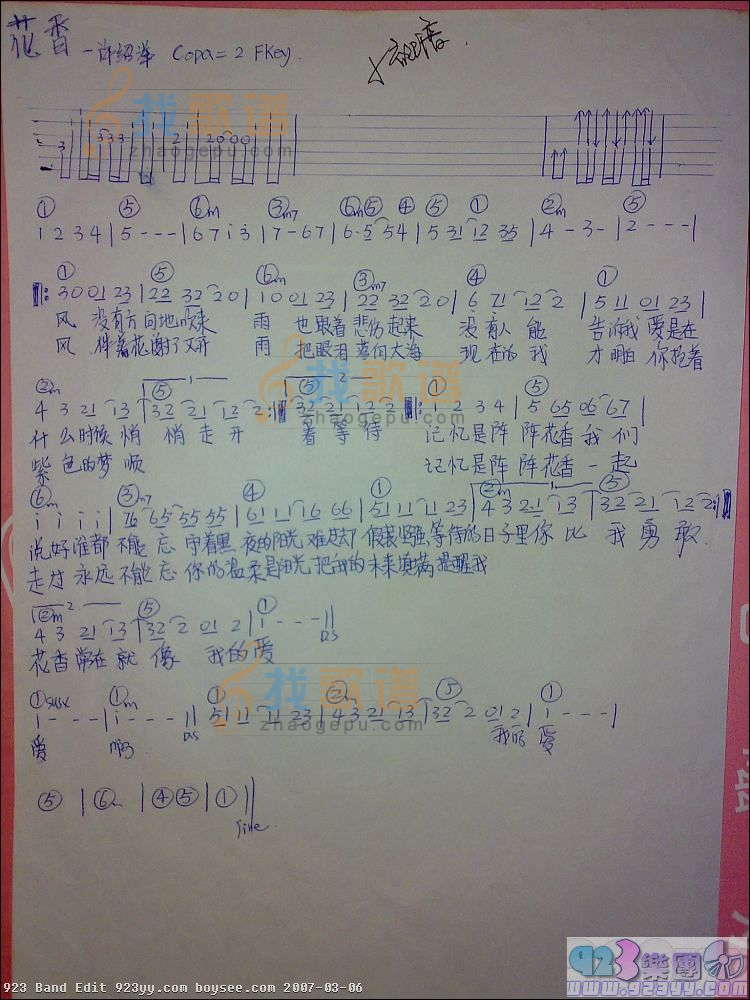 花香 - 许绍洋 Copa = 2 FKey.
找歌谱
zhaogepu.com
① ⑤ ⑥m ③m7 ⑥m ⑤ ④ ⑤ ① ②m ⑤
1 2 3 4 | 5 - - - | 6 7 i 3 | 7 - 6 7 | 6 · 5 5 4 | 5 31 12 35 | 4 - 3 - | 2 - - - |
① ⑤ ⑥m ③m7 ④ ①
‖: 30 01 23 | 22 32 20 | 10 01 23 | 22 32 20 | 6 71 12 2 | 5 11 01 23 |
风 没有方向地吹来 雨 也跟着悲伤起来 没有人能 告诉我 爱是在
风 伴着花谢了又开 雨 把眼泪落向大海 现在的我 才明白 你抱着
②m ⑤ ⑤ 2 ① ⑤
4 3 21 13 | 32 21 12 2 :‖ 32 21 12 2 ‖: 1 2 3 4 | 5 65 06 67 |
什么时候悄 悄走开 着等待 记忆是阵阵花香 我们
紫色的梦 记忆是阵阵花香 一起
找歌谱
zhaogepu.com
⑥m ③m7 ④ ① ②m ⑤
i i i i | 76 65 55 55 | 61 11 16 66 | 51 11 11 23 | 4 3 21 13 | 32 21 12 2 :‖
说好谁都不能忘 守着黑夜的阳光 难过了假装坚强 等待的日子里你比我勇敢
走过永远不能忘 你的温柔是阳光 把我的未来填满 提醒我
②m 2 ⑤ ①
4 3 21 13 | 32 2 01 2 | i - - - ‖ D.S
花香常在就像 我的爱
找歌谱
zhaogepu.com
①sus4 ①m ① ②m ⑤ ①
i - - - | i - - - ‖ D.S 51 11 11 23 | 4 3 21 13 | 32 2 01 2 | i - - - |
爱 啊 我的 爱
⑤ | ⑥m | ④⑤ | ① ‖
fine.
923樂團
www.923yy.com
923 Band Edit 923yy.com boysee.com 2007-03-06